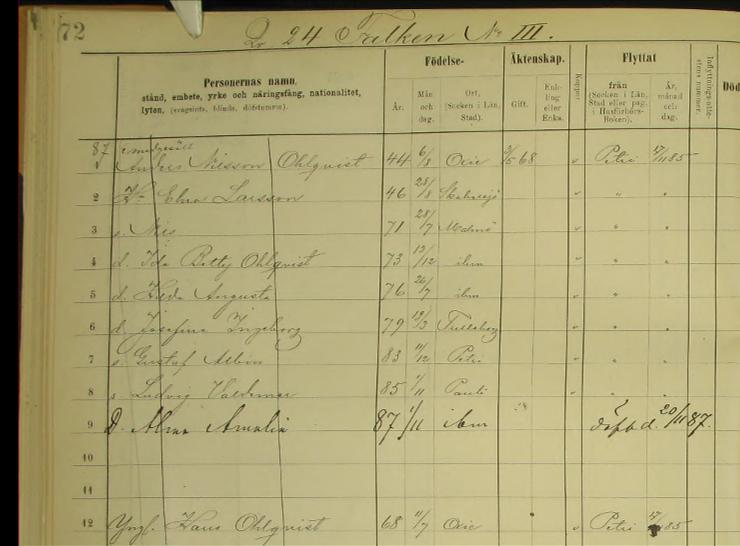 72
Qv 24 Falken No III.
Personernas namn,
stånd, embete, yrke och näringsfång, nationalitet,
lyten, (svagsinta, blinda, döfstumma).
Födelse-
År.
Mån och dag.
Ort, (Socken i Län, Stad).
Äktenskap.
Gift.
Enkling eller Enka.
Koppor
Flyttat
från (Socken i Län, Stad eller pag. i Husförhörs-Boken).
År, månad och dag.
Inflyttnings-attestens nummer.
Död
87 smedgesäll
1 Anders Nilsson Ohlqvist 44 6/8 Oxie 68 v Petri 17/11 85
2 H- Elna Larsson 46 28/8 Skabersjö " " "
3 s. Nils 71 28/7 Malmö " " "
4 d. Ida Betty Ohlqvist 73 13/12 ibm " " "
5 d. Hilda Augusta 76 26/7 ibm " " "
6 d. Josefina Ingeborg 79 19/3 Trelleborg " " "
7 s. Gustaf Albin 83 11/12 Petri " " "
8 s Ludvig Valdemar 85 1/11 Pauli " " "
9 D. Alma Amalia 87 1/11 ibm döpt d. 20/11 87.
10
11
12 Yngl. Hans Ohlqvist 68 11/7 Oxie v Petri 17/11 85